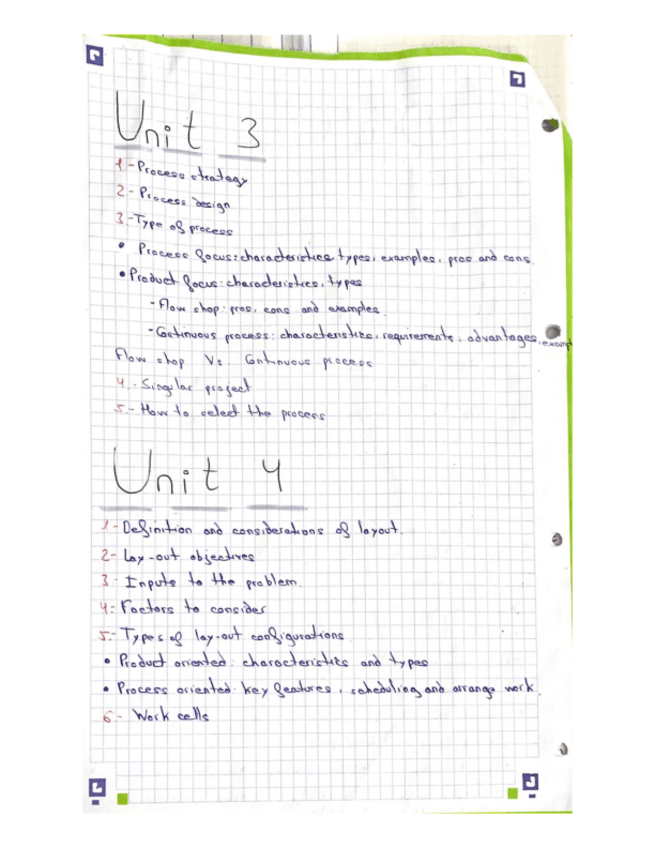 Unit 3
1-Process strategy
2- Process design
3-Type of process
• Process focus: characteristics types, examples, pros and cons.
• Product focus: characteristics, types
- Flow shop: pros, cons and examples.
- Continuous process: characteristics, requirements, advantages, exampl
Flow shop Vs. Continuous process
4.- Singular project
5.- How to select the process
Unit 4
1-Definition and considerations of layout.
2- Lay-out objectives
3- Inputs to the problem.
4- Factors to consider
5.- Types of lay-out configurations
• Product oriented: characteristics and types
• Process oriented: key features, scheduling and arrange work.
6- Work cells